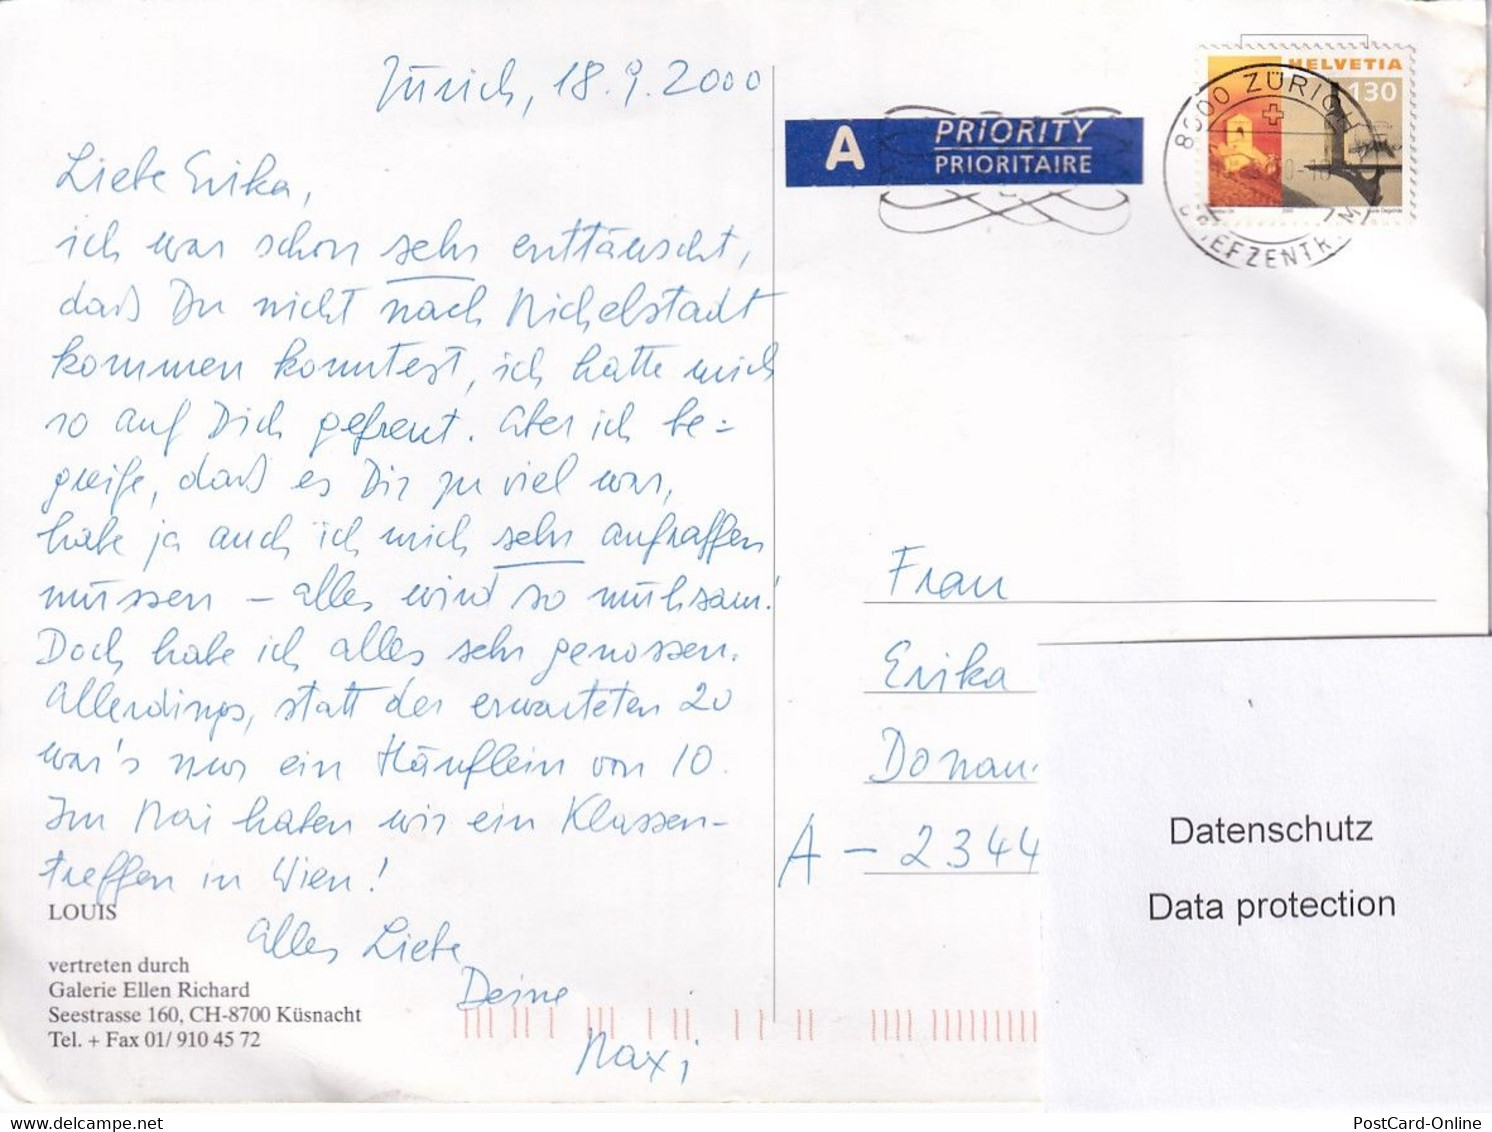 Zürich, 18.9.2000
Liebe Erika,
ich war schon sehr enttäuscht,
daß Du nicht nach Michelstadt
kommen konntest, ich hatte mich
so auf Dich gefreut. Aber ich be=
greife, daß es Dir zu viel war,
habe ja auch ich mich sehr aufraffen
müssen – alles wird so mühsam!
Doch habe ich alles sehr genossen.
Allerdings, statt der erwarteten 20
war's nur ein Häuflein von 10.
Im Mai haben wir ein Klassen-
treffen in Wien!
Alles Liebe
Deine
Maxi
LOUIS
vertreten durch
Galerie Ellen Richard
Seestrasse 160, CH-8700 Küsnacht
Tel. + Fax 01/ 910 45 72
A PRIORITY
PRIORITAIRE
HELVETIA
130
8000 ZÜRICH
BRIEFZENTRUM
Frau
Erika
Donau
A – 2344
Datenschutz
Data protection
PostCard-Online